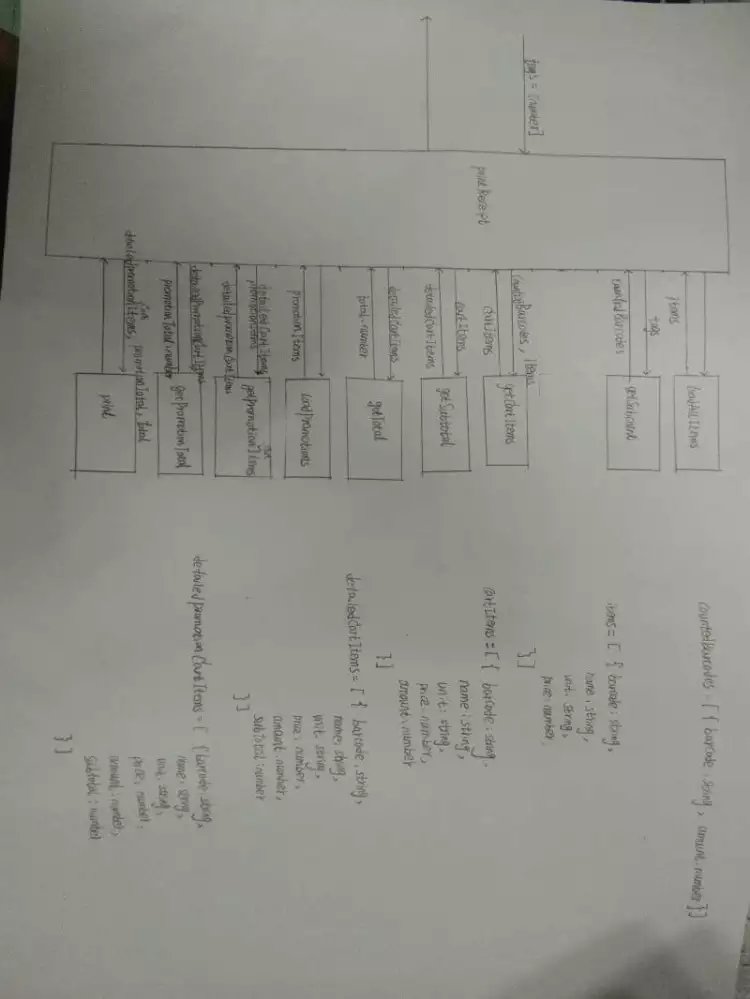 tags = [number]
printReceipt
items
loadAllItems
tags
countedBarcodes
countedBarcodes, items
cartItems
getCartItems
cartItems
detailedCartItems
getSubtotal
detailedCartItems
total: number
getTotal
promotionItems
loadPromotions
detailedCartItems
promotionItems
detailedpromotionCartItems
detailedPromotionCartItems
promotionTotal: number
getPromotionTotal
detailedpromotionItems, promotionTotal, total
print
countedBarcodes = [ { barcode: string, amount: number } ]
items = [ { barcode: string,
name: string,
unit: string,
price: number,
} ]
cartItems = [ { barcode: string,
name: string,
unit: string,
price: number,
amount: number
} ]
detailedCartItems = [ { barcode: string,
name: string,
unit: string,
price: number,
amount: number,
subTotal: number
} ]
detailedpromotionCartItems = [ { barcode: string,
name: string,
unit: string,
price: number,
amount: number,
subtotal: number
} ]